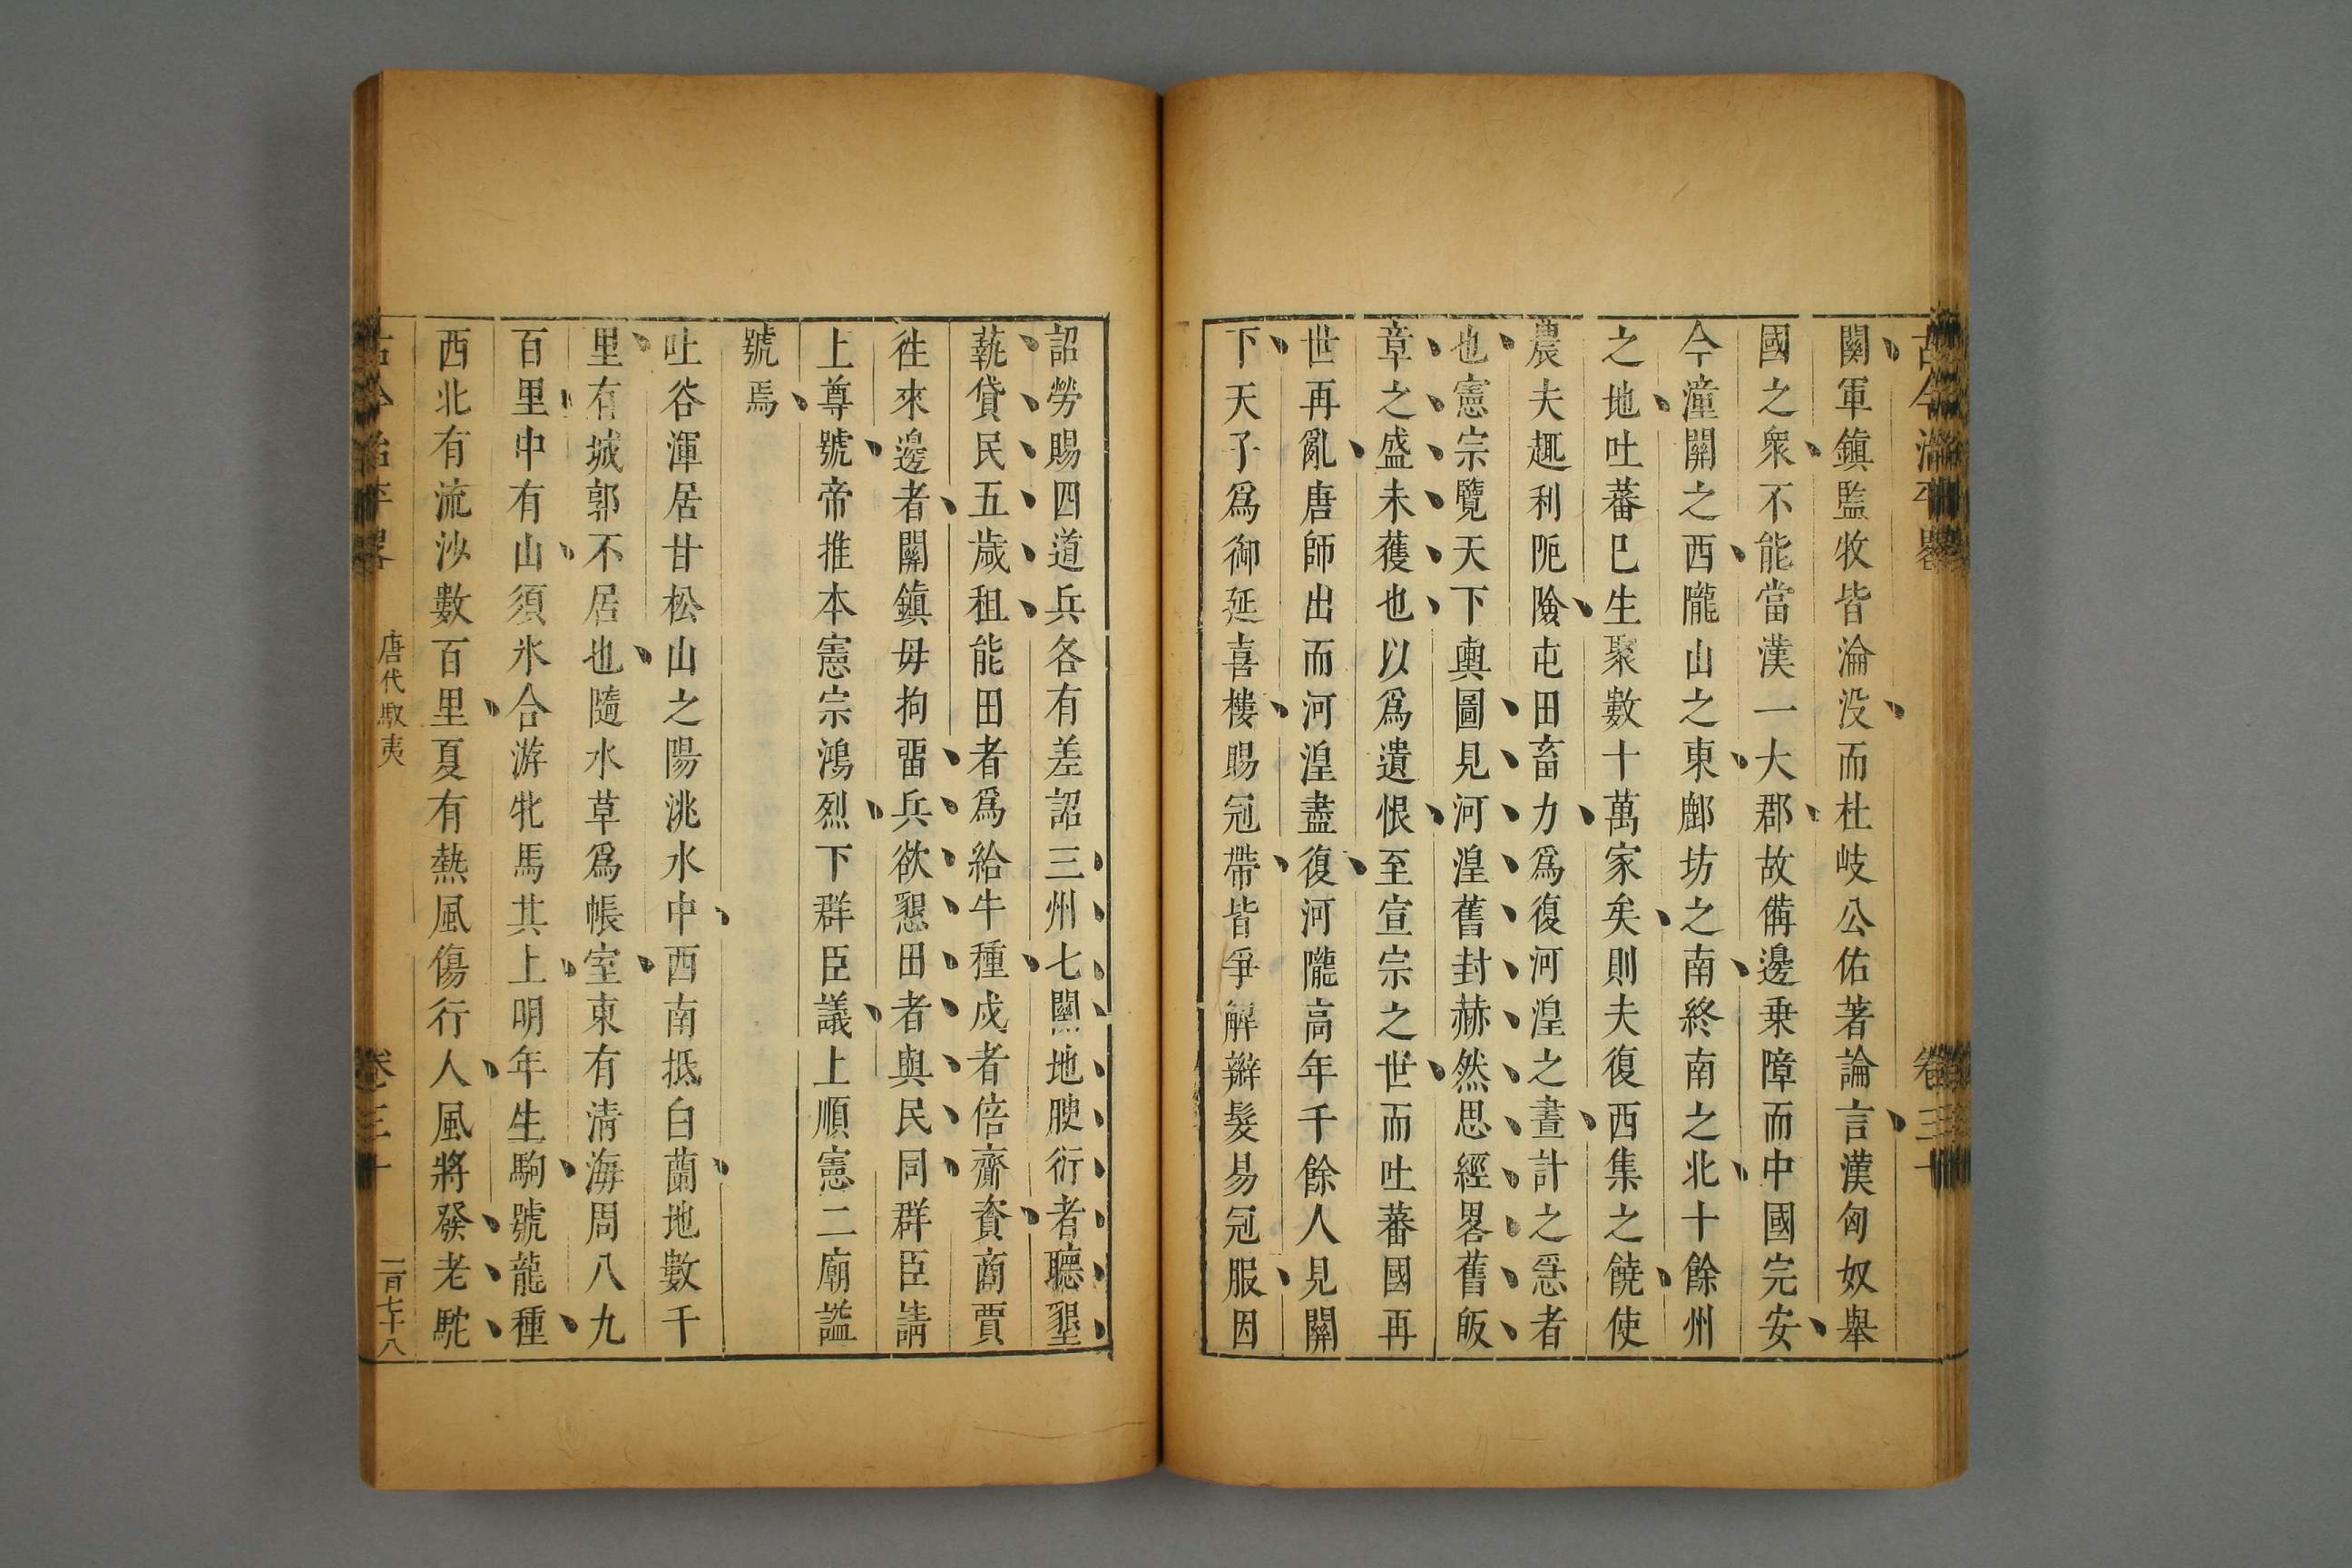 古今治平畧 卷三十
關軍鎮監牧皆淪没而杜岐公佑著論言漢匈奴舉
國之衆不能當漢一大郡故備邊乗障而中國完安
今潼關之西隴山之東鄜坊之南終南之北十餘州
之地吐蕃巳生聚數十萬家矣則夫復西集之饒使
農夫趣利阨險屯田畜力爲復河湟之晝計之急者
也憲宗覽天下輿圖見河湟舊封赫然思經畧舊版
章之盛未獲也以爲遺恨至宣宗之世而吐蕃國再
世再亂唐師出而河湟盡復河隴高年千餘人見闕
下天子爲御延喜樓賜冠帶皆爭解辮髮易冠服因
詔勞賜四道兵各有差詔三州七關地腴衍者聽墾
蓺貸民五歲租能田者爲給牛種戍者倍齎資商賈
徃來邊者關鎮毋拘畱兵欲懇田者與民同群臣請
上尊號帝推本憲宗鴻烈下群臣議上順憲二廟謚
號焉
吐谷渾居甘松山之陽洮水中西南抵白蘭地數千
里有城郭不居也隨水草爲帳室東有清海周八九
百里中有山須氷合游牝馬其上明年生駒號龍種
西北有流沙數百里夏有熱風傷行人風將發老駝
古今治平畧 唐代馭夷 卷三十 一百七十八